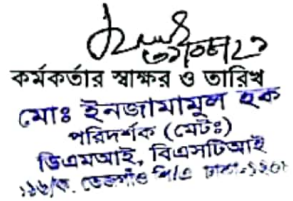 ৩১/০৮/২১
কর্মকর্তার স্বাক্ষর ও তারিখ
মোঃ ইনজামামুল হক
পরিদর্শক (মেটঃ)
ডিএমআই, বিএসটিআই
১১৬/ক, তেজগাঁও শি/এ ঢাকা-১২০৮